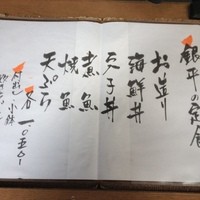 銀平の定食
お造り
海鮮丼
天丼
煮魚
焼魚
天ぷら
各一、〇五〇-